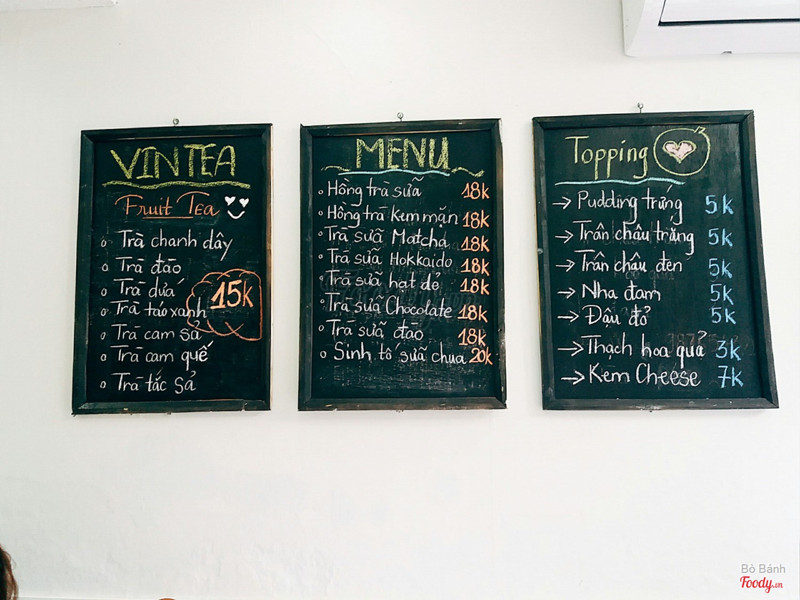 VINTEA
Fruit Tea
Trà chanh dây
Trà đào
Trà dứa
Trà táo xanh
Trà cam sả
Trà cam quế
Trà tắc sả
15k
MENU
Hồng trà sữa 18k
Hồng trà kem mặn 18k
Trà sữa Matcha 18k
Trà sữa Hokkaido 18k
Trà sữa hạt dẻ 18k
Trà sữa Chocolate 18k
Trà sữa đào 18k
Sinh tố sữa chua 20k
Topping
Pudding trứng 5k
Trân châu trắng 5k
Trân châu đen 5k
Nha đam 5k
Đậu đỏ 5k
Thạch hoa quả 3k
Kem Cheese 7k
Bò Bánh
Foody.vn